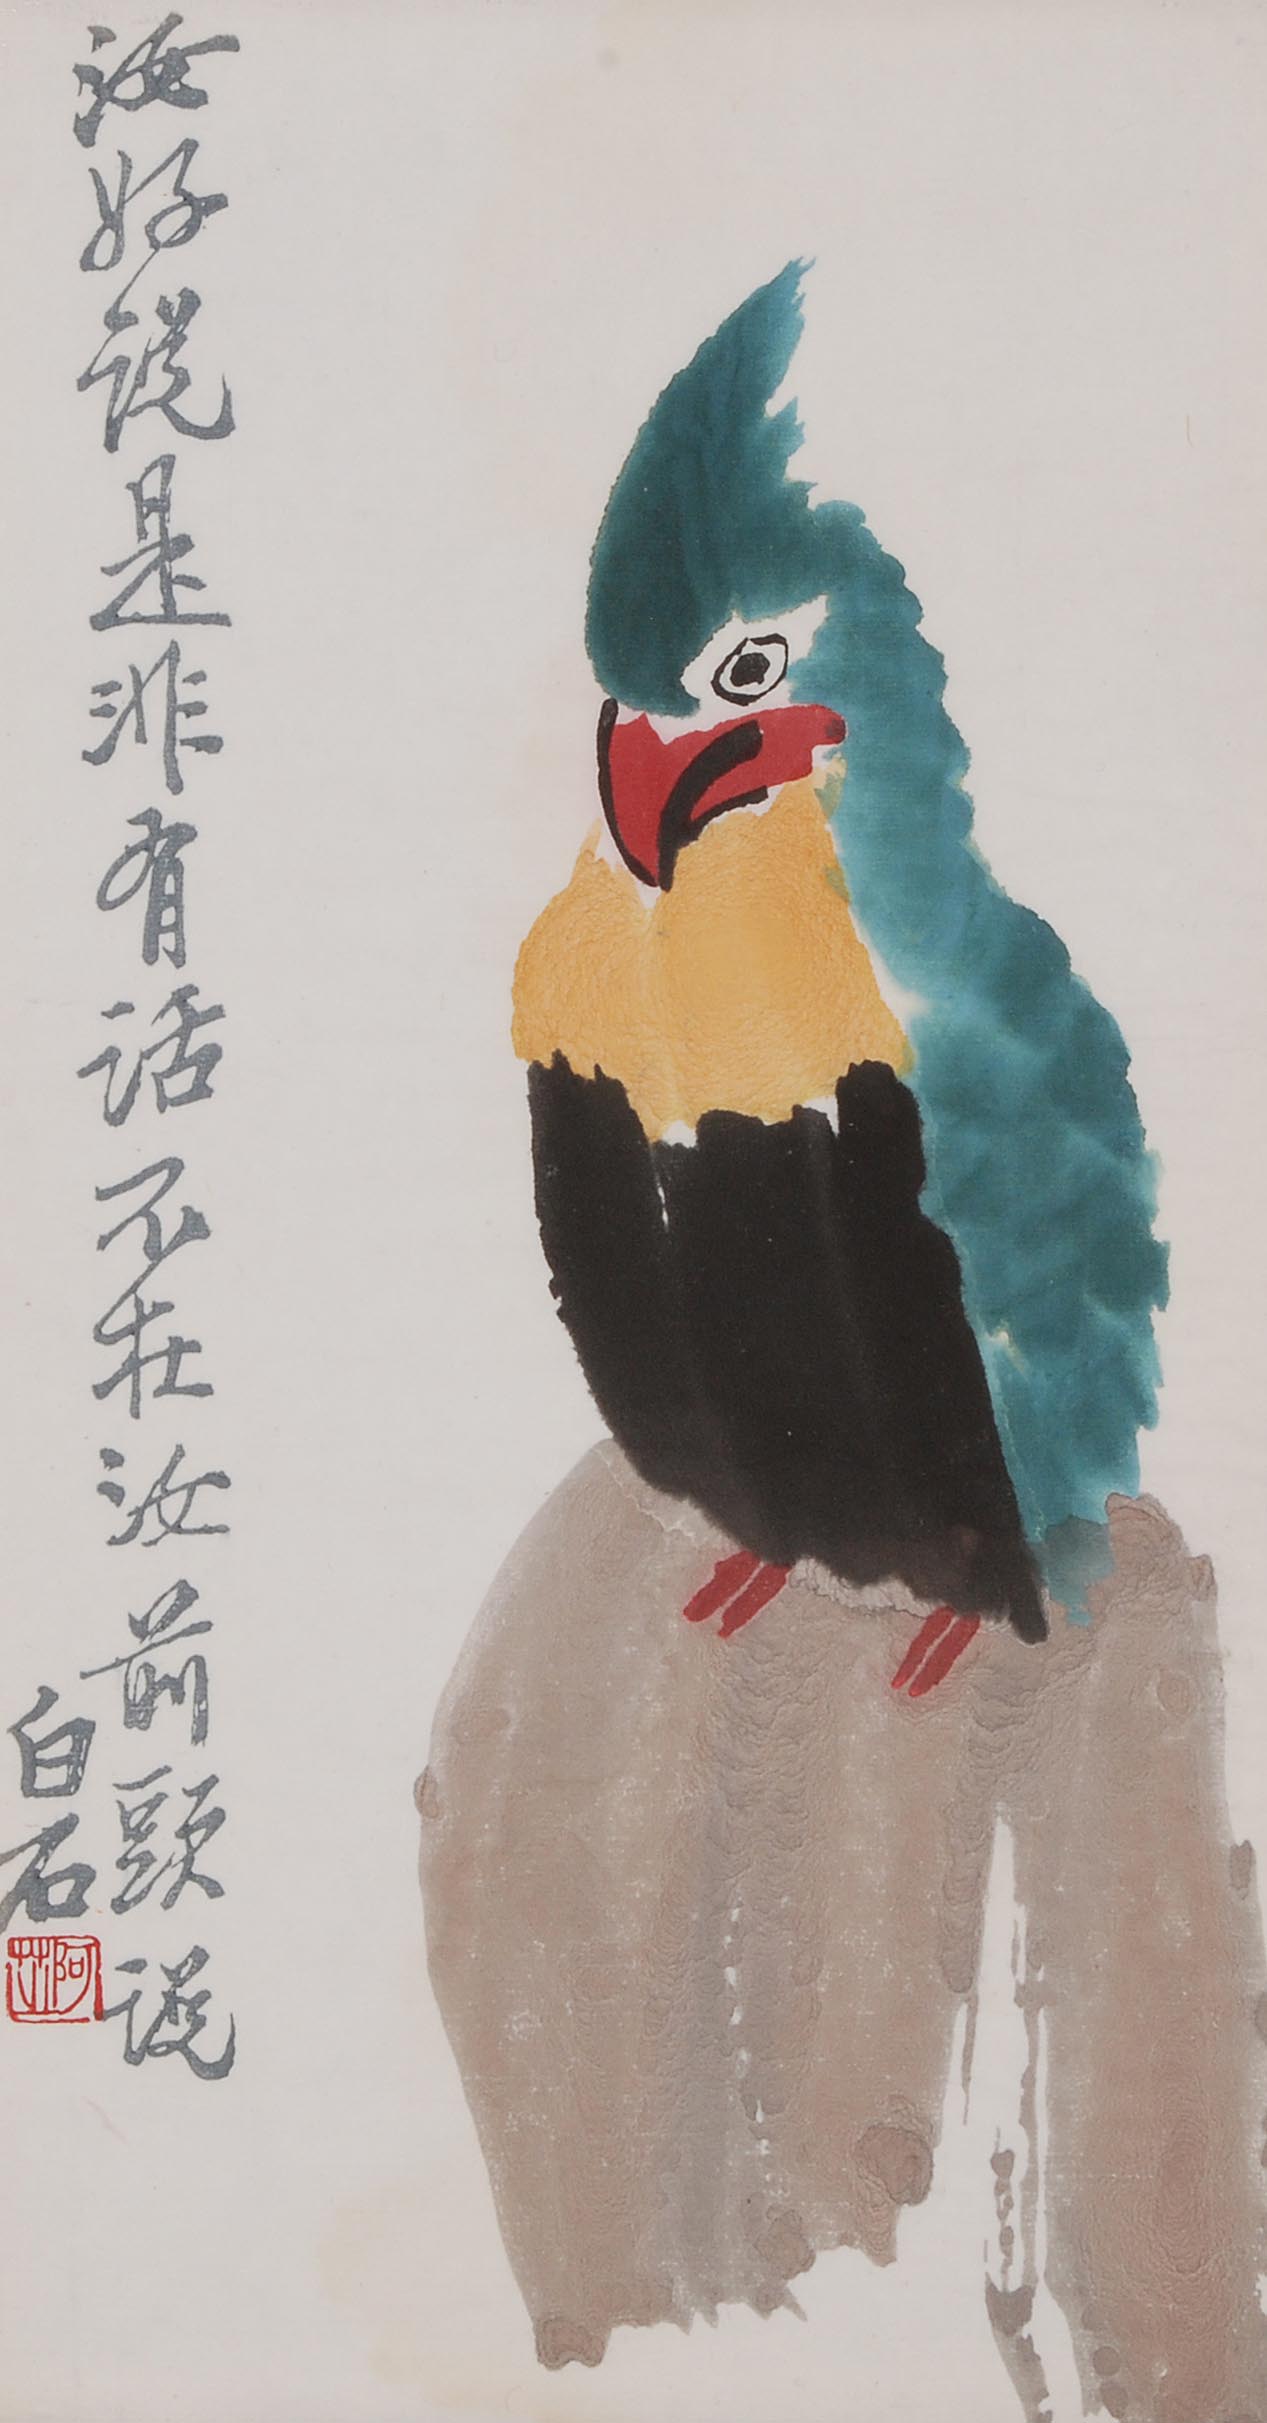 汝好说是非有话不在汝前頭说
白石
阿芝